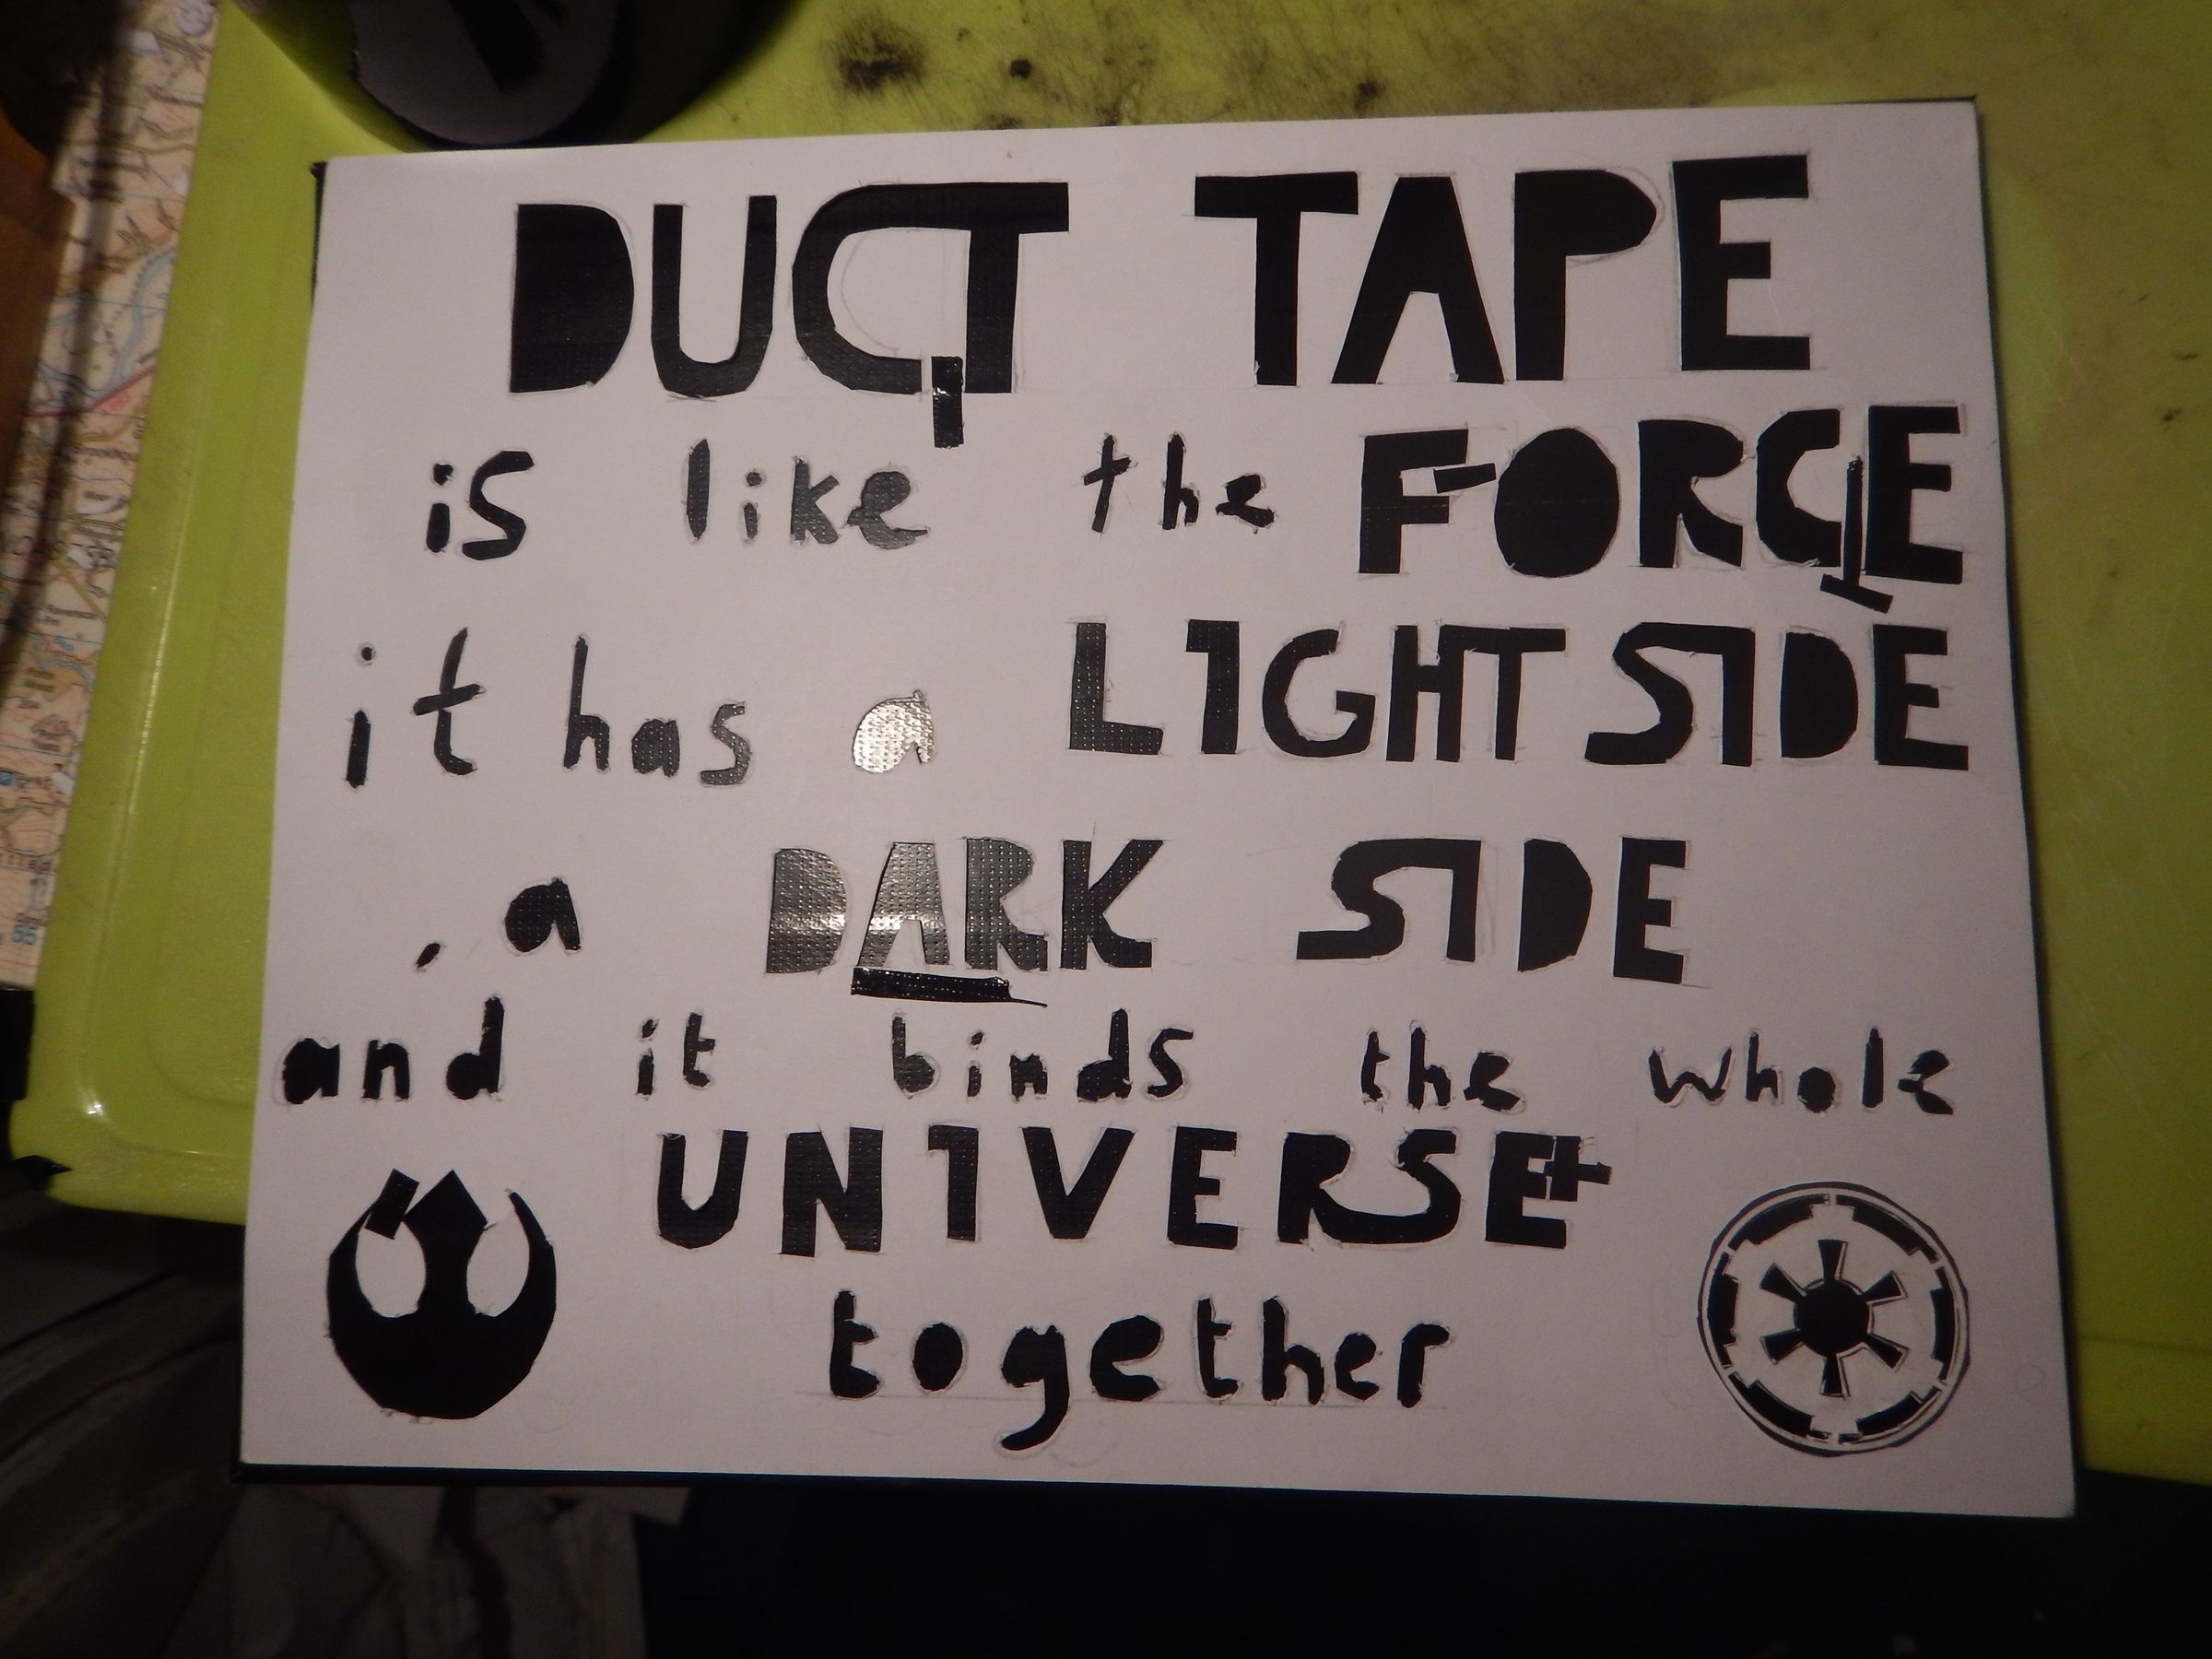 DUCT TAPE
is like the FORCE
it has a LIGHT SIDE
, a DARK SIDE
and it binds the whole
UNIVERSE
together